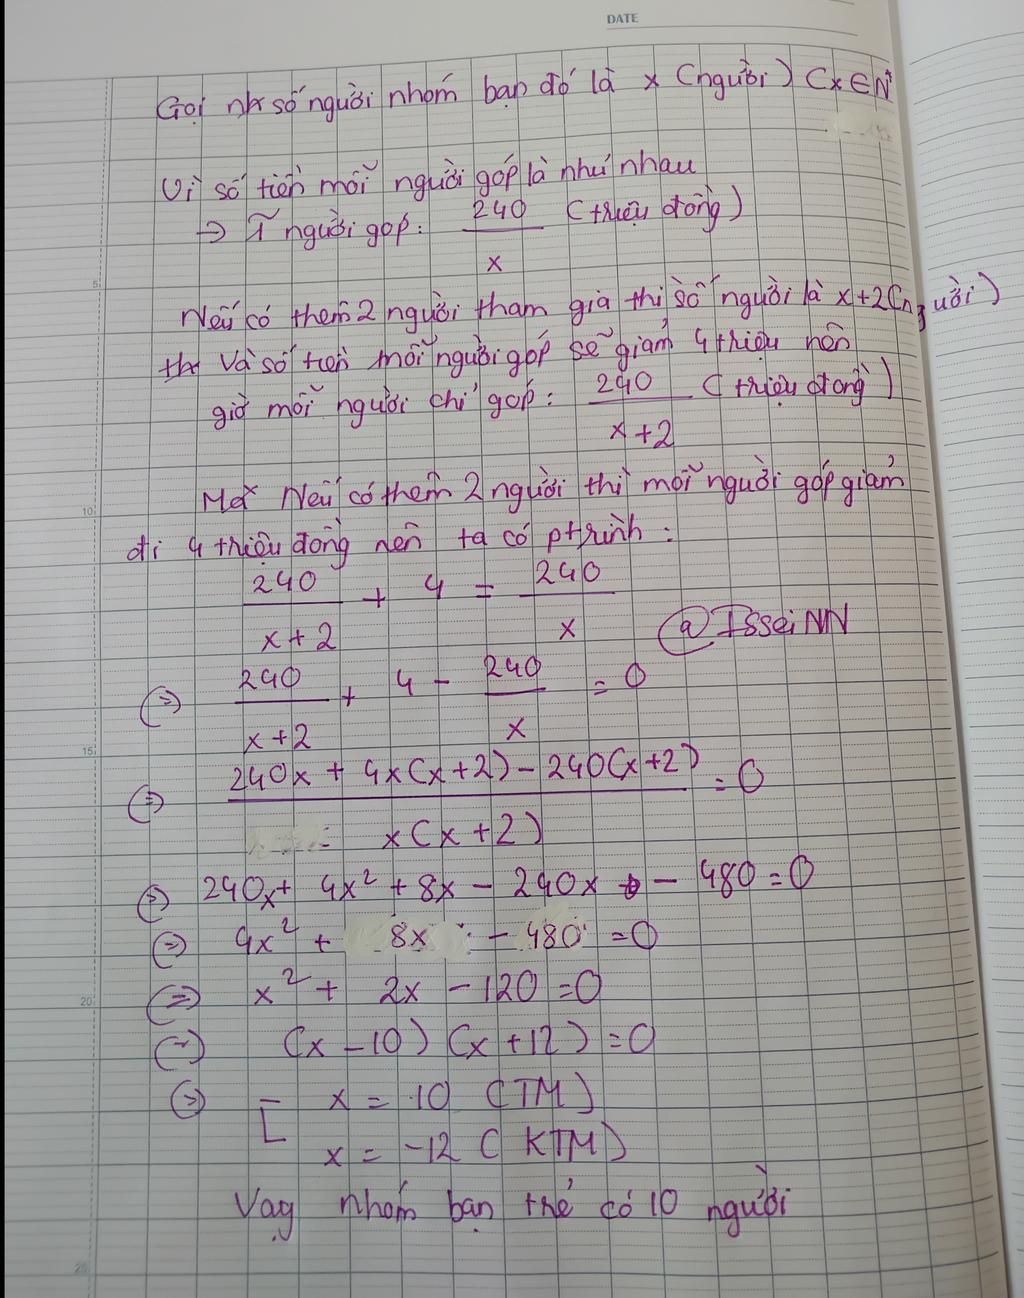 DATE
Gọi số người nhóm bạn đó là x (người) (x∈N*
Vì số tiền mỗi người góp là như nhau
⇒ 1 người góp: 240/x (triệu đồng)
Nếu có thêm 2 người tham gia thì số người là x+2 (người)
Và số tiền mỗi người góp sẽ giảm 4 triệu nên
giờ mỗi người chỉ góp: 240/(x+2) (triệu đồng)
Mà Nếu có thêm 2 người thì mỗi người góp giảm
đi 4 triệu đồng nên ta có ptrình:
240/(x+2) + 4 = 240/x
@IsseiNN
⇔ 240/(x+2) + 4 - 240/x = 0
⇔ (240x + 4x(x+2) - 240(x+2))/(x(x+2)) = 0
⇔ 240x + 4x² + 8x - 240x - 480 = 0
⇔ 4x² + 8x - 480 = 0
⇔ x² + 2x - 120 = 0
⇔ (x-10)(x+12) = 0
⇔ [ x = 10 (TM)
x = -12 (KTM)
Vậy nhóm bạn trẻ có 10 người
5
10
15
20
25